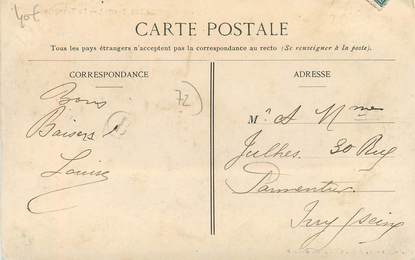 40f
CARTE POSTALE
Tous les pays étrangers n'acceptent pas la correspondance au recto (Se renseigner à la poste).
CORRESPONDANCE
ADRESSE
Bons
Baisers
Louise
72
Mr & Mme
Julhes 30 Rue
Parmentier
Ivry Seine